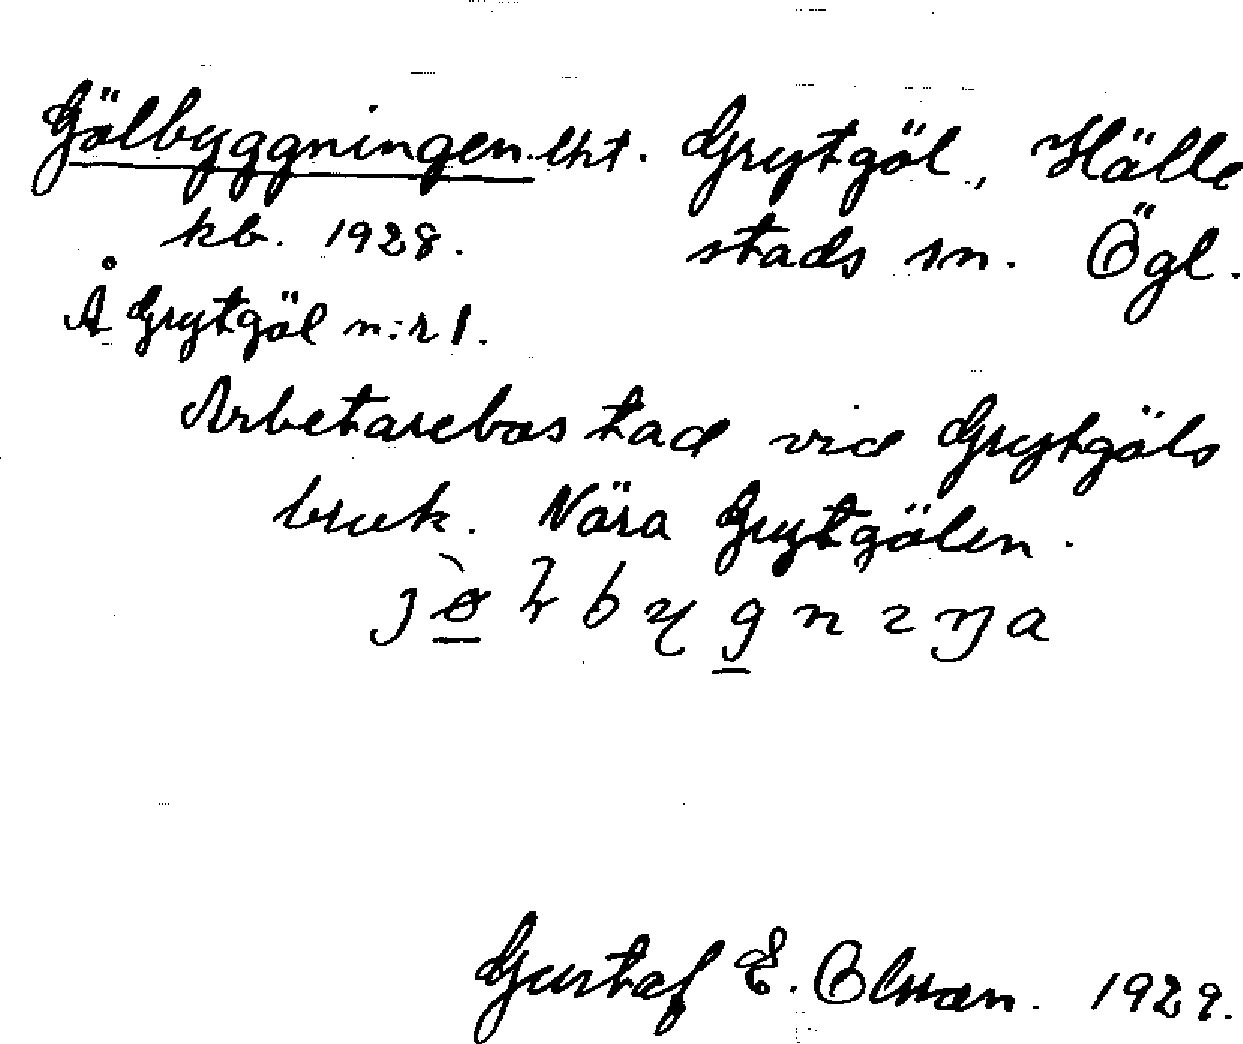 Gölbyggningen lht. Grytgöl, Hälle
kb. 1928. stads sn. Ögl.
Å Grytgöl n:r 1.
Arbetarebostad vid Grytgöls
bruk. Nära Grytgölen.
Gustaf E. Olsson. 1929.